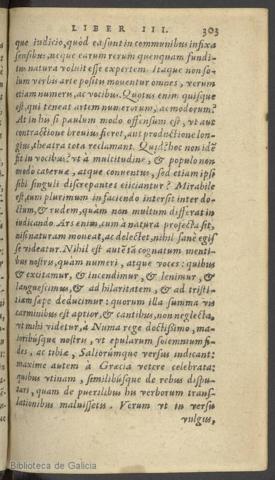 LIBER III. 303
que iudicio, quòd ea sunt in communibus infixa
sensibus, neque earum rerum quenquam fundi-
tus natura voluit esse expertem. Itaque non so-
lum verbis arte positis mouentur omnes, verum
etiam numeris, ac vocibus. Quotus enim quisque
est, qui teneat artem numerorum, ac modorum?
At in his si paulum modo offensum est, vt aut
contractione breuius fieret, aut productione lon-
gius, theatra tota reclamant. Quid? hoc non idē
fit in vocibus? vt à multitudine, & populo non
modo cateruæ, atque conuentus, sed etiam ipsi
sibi singuli discrepantes eiiciantur? Mirabile
est, cum plurimum in faciendo intersit inter do-
ctum, & rudem, quàm non multum differat in
iudicando. Ars enim, cum à natura profecta sit,
nisi naturam moueat, ac delectet, nihil sanè egis-
se videatur. Nihil est autē tā cognatum menti-
bus nostris, quàm numeri, atque voces: quibus
& excitamur, & incendimur, & lenimur, &
languescimus, & ad hilaritatem, & ad tristi-
tiam sæpe deducimur: quorum illa summa vis
carminibus est aptior, & cantibus, non neglecta,
vt mihi videtur, à Numa rege doctissimo, ma-
ioribúsque nostris, vt epularum solemnium fi-
des, ac tibiæ, Saliorúmque versus indicant:
maxime autem à Græcia vetere celebrata:
quibus vtinam, similibúsque de rebus dispu-
tari, quàm de puerilibus his verborum trans-
lationibus maluissetis. Verum vt in versu
vulgus,
Biblioteca de Galicia